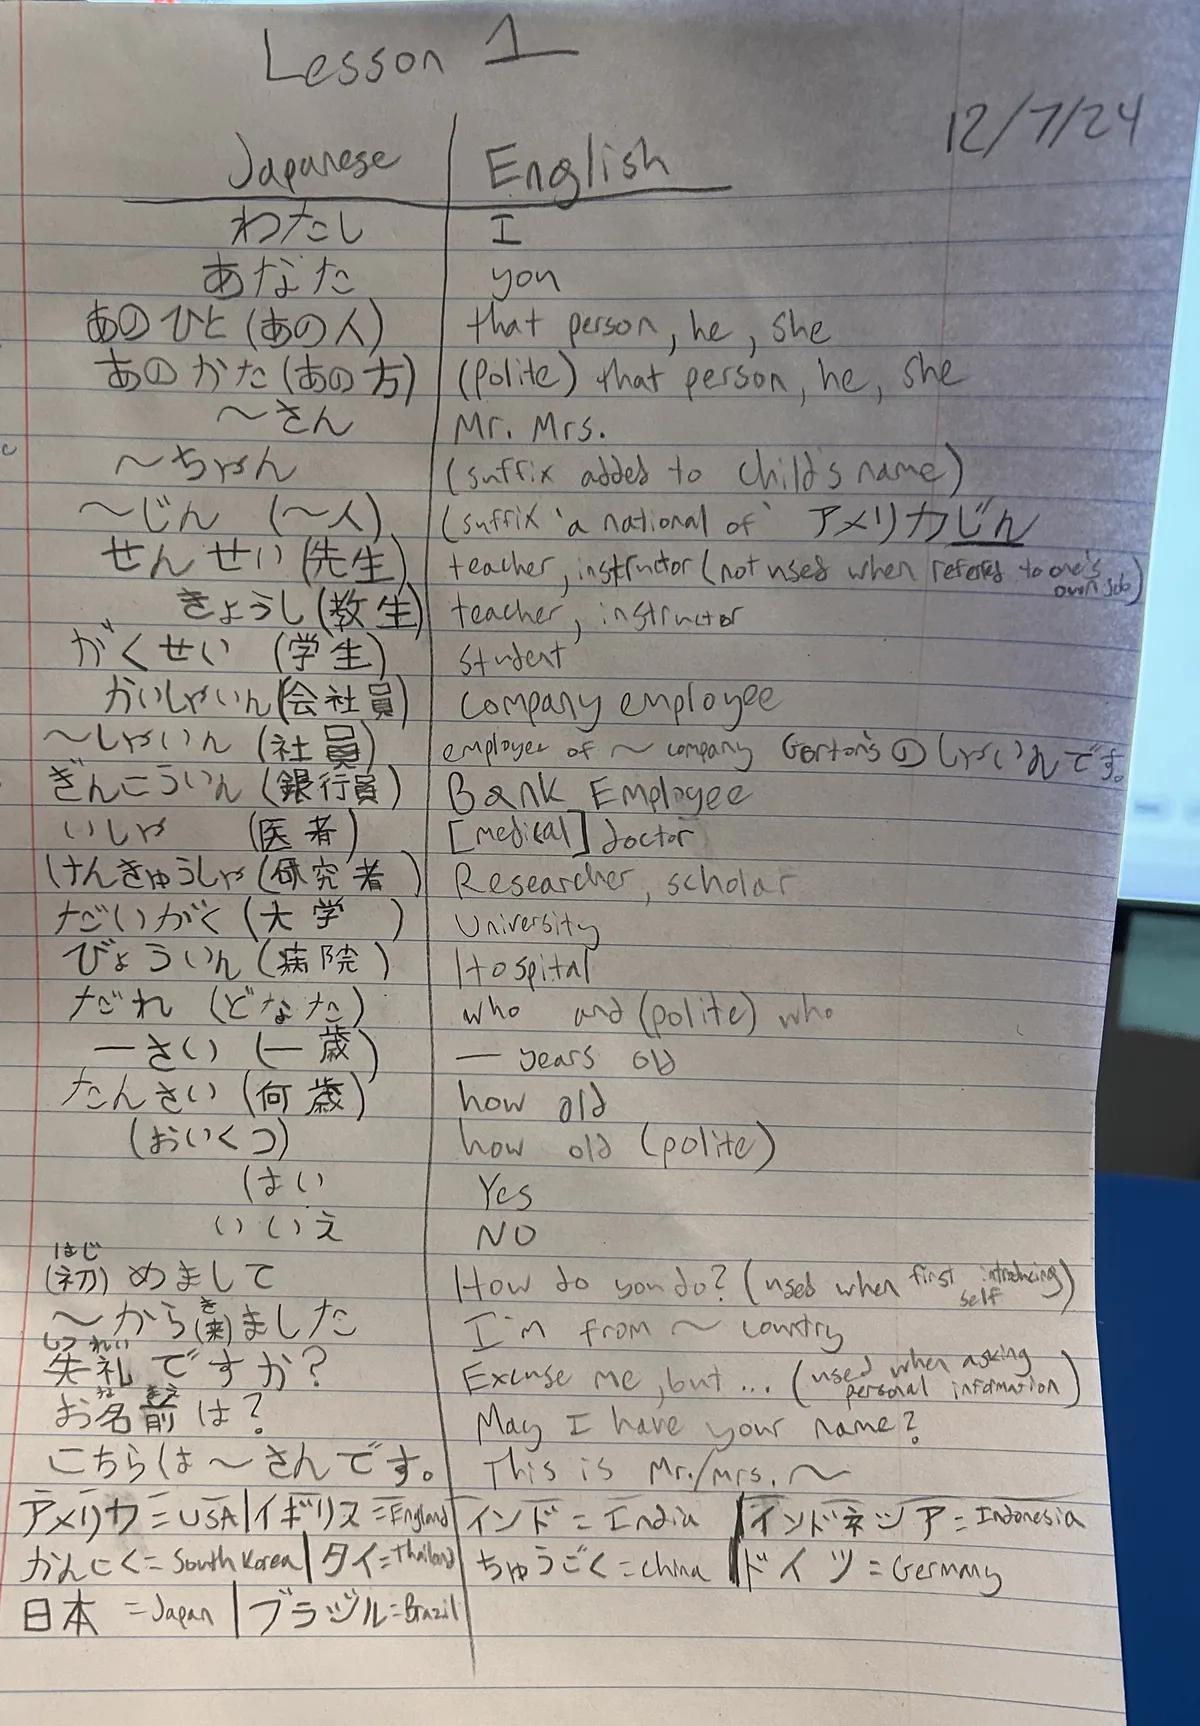 Lesson 1
12/7/24
Japanese English
わたし I
あなた you
あのひと(あの人) that person, he, she
あのかた(あの方) (polite) that person, he, she
～さん Mr. Mrs.
～ちゃん (suffix added to child's name)
～じん (～人) (suffix 'a national of' アメリカじん
せんせい(先生) teacher, instructor (not used when refered to one's own job)
きょうし(教生) teacher, instructor
がくせい (学生) student
かいしゃいん(会社員) company employee
～しゃいん (社員) employee of ～ company Gorton's のしゃいんです。
ぎんこういん (銀行員) Bank Employee
いしゃ (医者) [medical] doctor
けんきゅうしゃ (研究者) Researcher, scholar
だいがく (大学) University
びょういん (病院) Hospital
だれ (どなた) who and (polite) who
ーさい (ー歳) — years old
たんさい (何歳) how old
(おいくつ) how old (polite)
はい Yes
いいえ NO
はじ
(初)めまして How do you do? (used when first introducing self)
き
～から(来)ました I'm from ～ country
しつれい
失礼ですか? Excuse me, but... (used when asking personal information)
なまえ
お名前は? May I have your name?
こちらは～さんです。 This is Mr./mrs. ～
アメリカ = USA | イギリス = England インド = India | インドネシア = Indonesia
かんにく = South Korea | タイ = Thailand ちゅうごく = China | ドイツ = Germany
日本 = Japan | ブラジル = Brazil